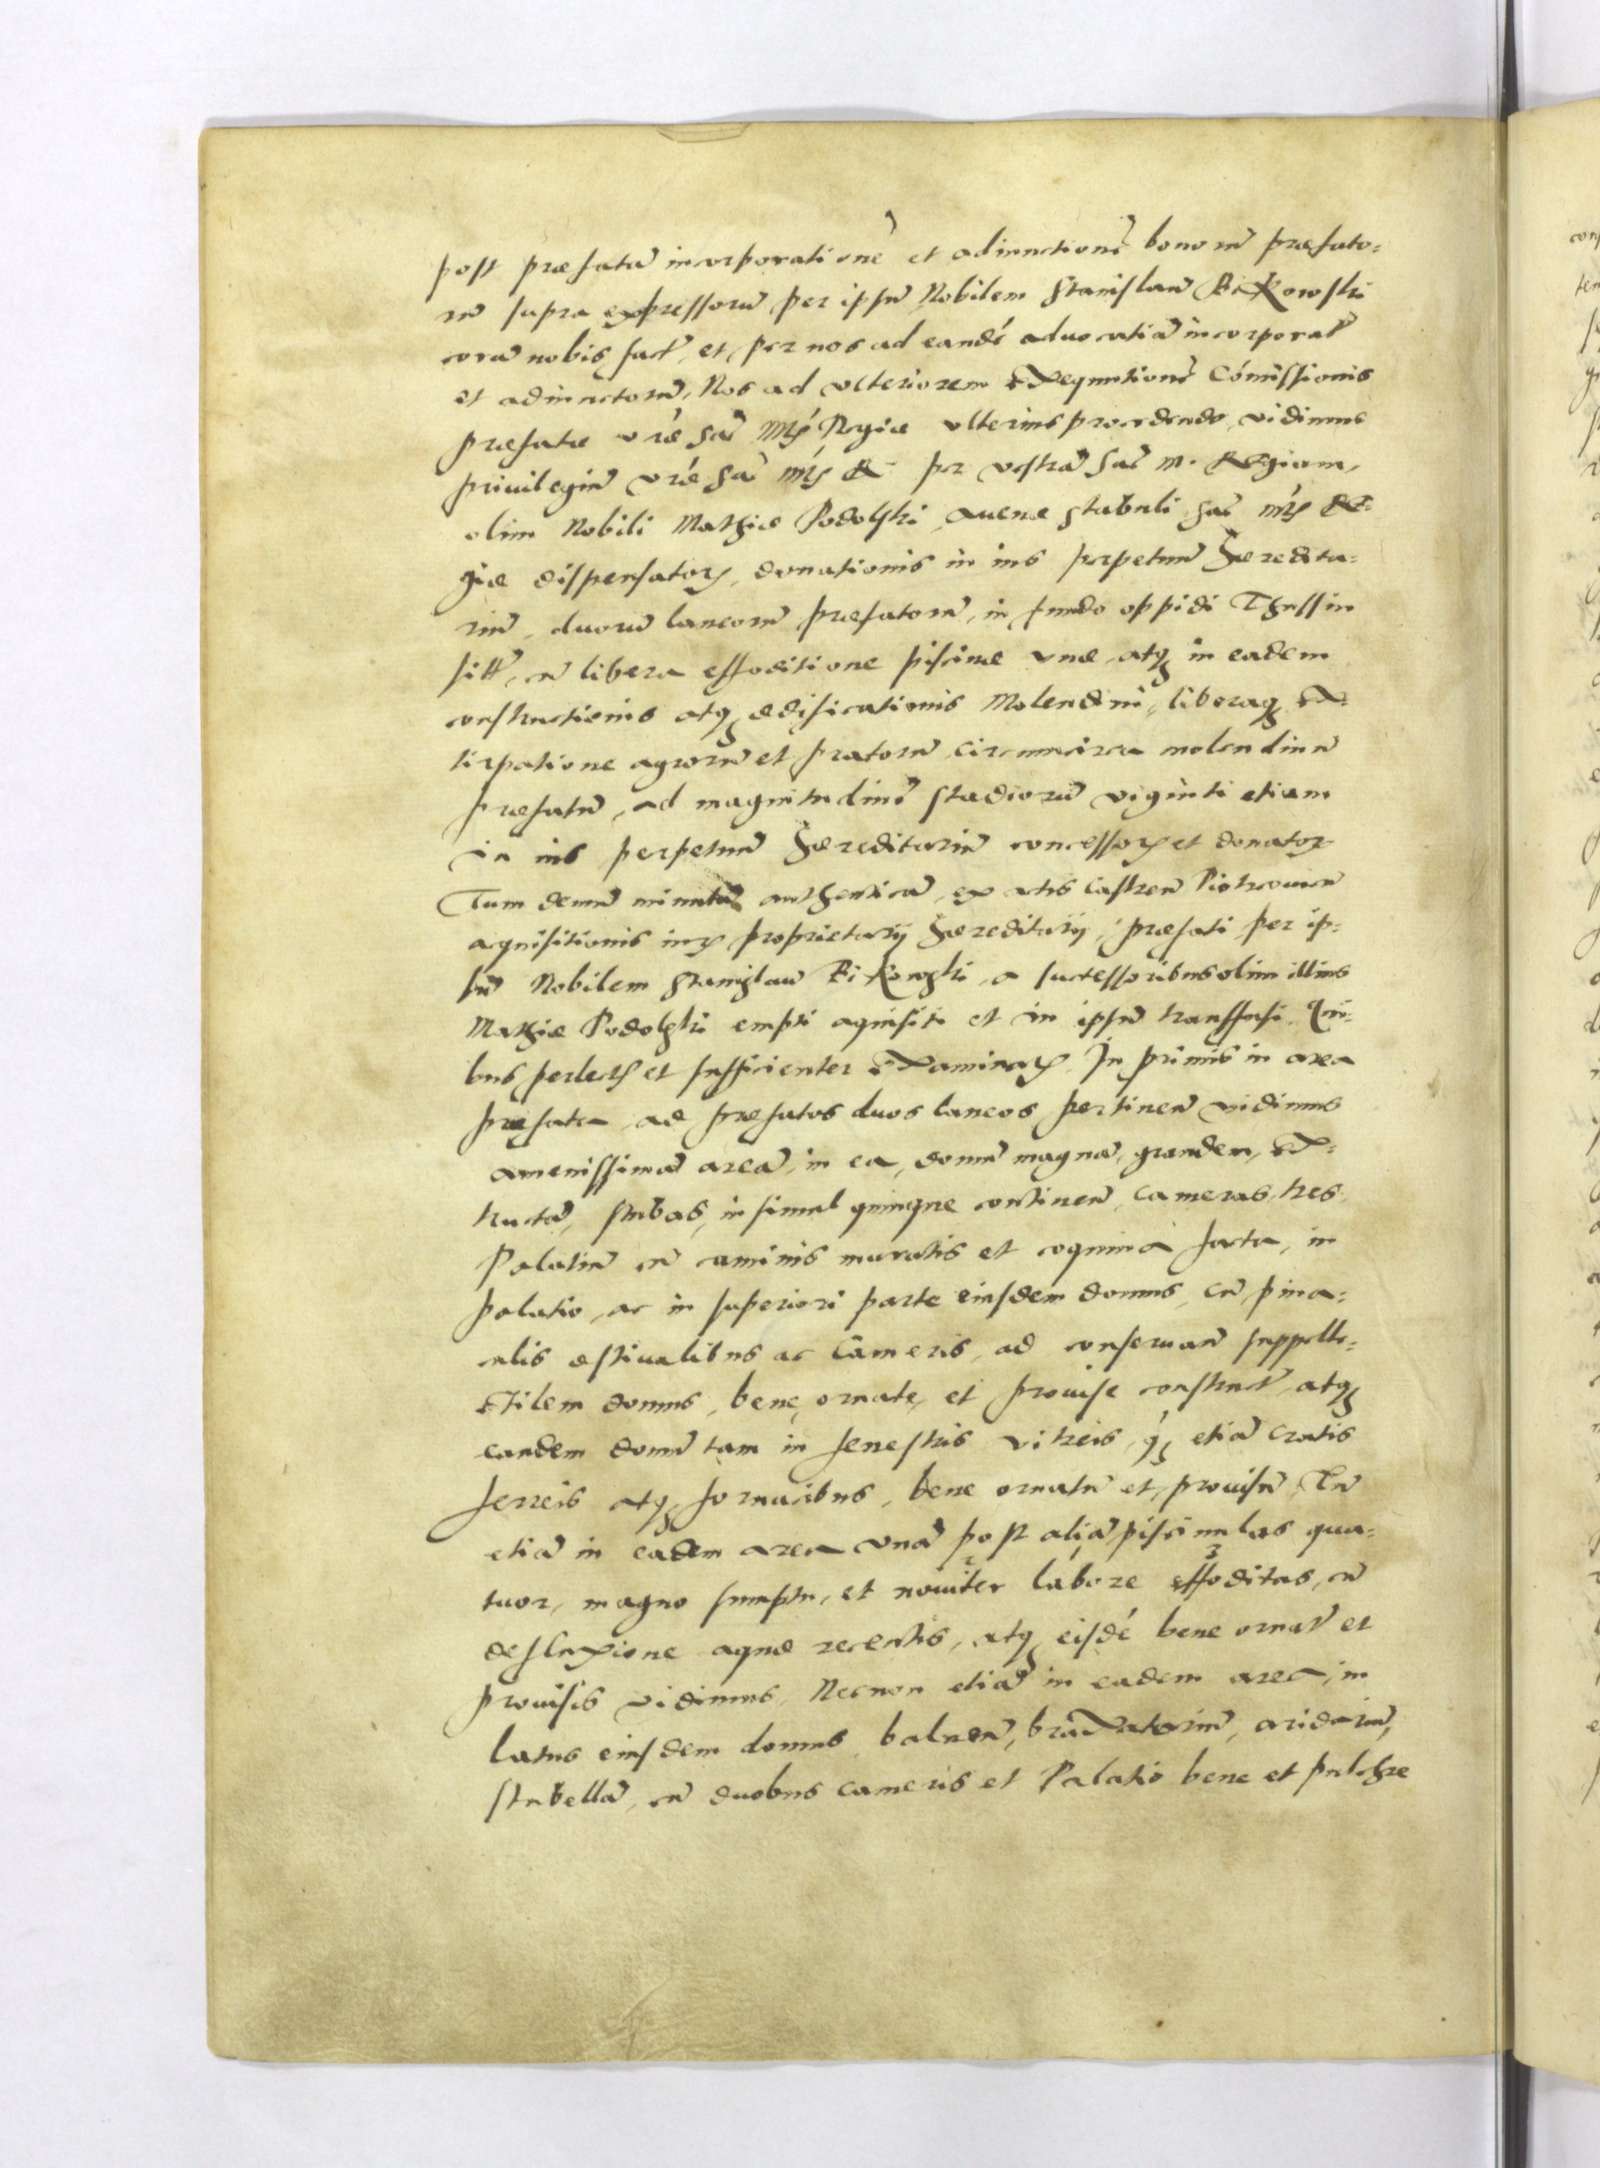 post præfatã incorporationẽ et adiunctionẽ bonorũ præfato=
rũ supra expressorũ per ipsũ Nobilem Stanislaũ Bikowski
corã nobis fact̃, et per nos ad eandẽ aduocatiã incorporat̃
et adiunctorũ, Nos ad vlteriorem Exequutionẽ Cómissionis
præfatæ vrẽ Sac̃ Mtꝭ Regiæ vlterius procedendo, vidimus
priuilegiũ vrẽ Sac̃ Mtꝭ R per vestrã Sac̃ M. Regiam,
olim Nobili Mathiæ Podolski auenæ stabuli Sac̃ Mtꝭ Re=
giæ dispensatorꝭ, donationis in ius perpetuũ hæredita=
riũ, duorũ laneorũ præfatorũ, in fundo oppidi Thussin
sitt̃, cũ libera effoditione piscinæ vnæ, atqꝫ in eadem
constructionis atqꝫ ædificationis Molendini, liberaqꝫ Ex=
tirpatione agrorũ et pratorũ circumcirca molendinũ
præfatũ, ad magnitudinẽ stadiorũ viginti etiam
in ius perpetuũ hæreditariũ concessorꝭ et donator̃
Tum demũ minutã authenticã, ex actis Castreñ Piotrcouieñ
aquisitionis iurꝭ proprietarij hæreditarij, præfati per ip=
sũ Nobilem Stanislaũ Bikowski, a successoribus olim illius
Mathiæ Podolski empti aquisiti et in ipsũ transfusi. Qui=
bus perlectꝭ et sufficienter Examinatꝭ. In primis in area
præfata ad præfatos duos laneos pertineñ vidimus
amenissimã areã, in ea, domũ magnã, grandem, Ex=
tructã, stubas, insimul quinque contineñ, Cameras, tres
Palatiũ cũ caminis muratis et coquina facta, in
palatio, ac in superiori parte eiusdem domus, cũ pina=
culis æstiualibus ac Cameris, ad conseruañ suppelle=
ctilem domus, bene, ornate, et prouise construct̃, atqꝫ
eandem domũ tam in fenestris vitreis, qꝫ etiã Cratis
ferreis atqꝫ fornacibus, bene ornatũ et prouisũ, Tũ
etiã in eadem area vnã post aliã pisciniulas qua=
tuor, magno sumptu, et nouiter labore effoditas, cũ
defluxione aquæ recentis, atqꝫ eisdẽ bene ornat̃ et
prouisis vidimus, Necnon etiã in eadem area, in
latus eiusdem domus balneũ, braxatoriũ, aridariũ,
stubellã, cũ duobus cameris et Palatio bene et pulchre